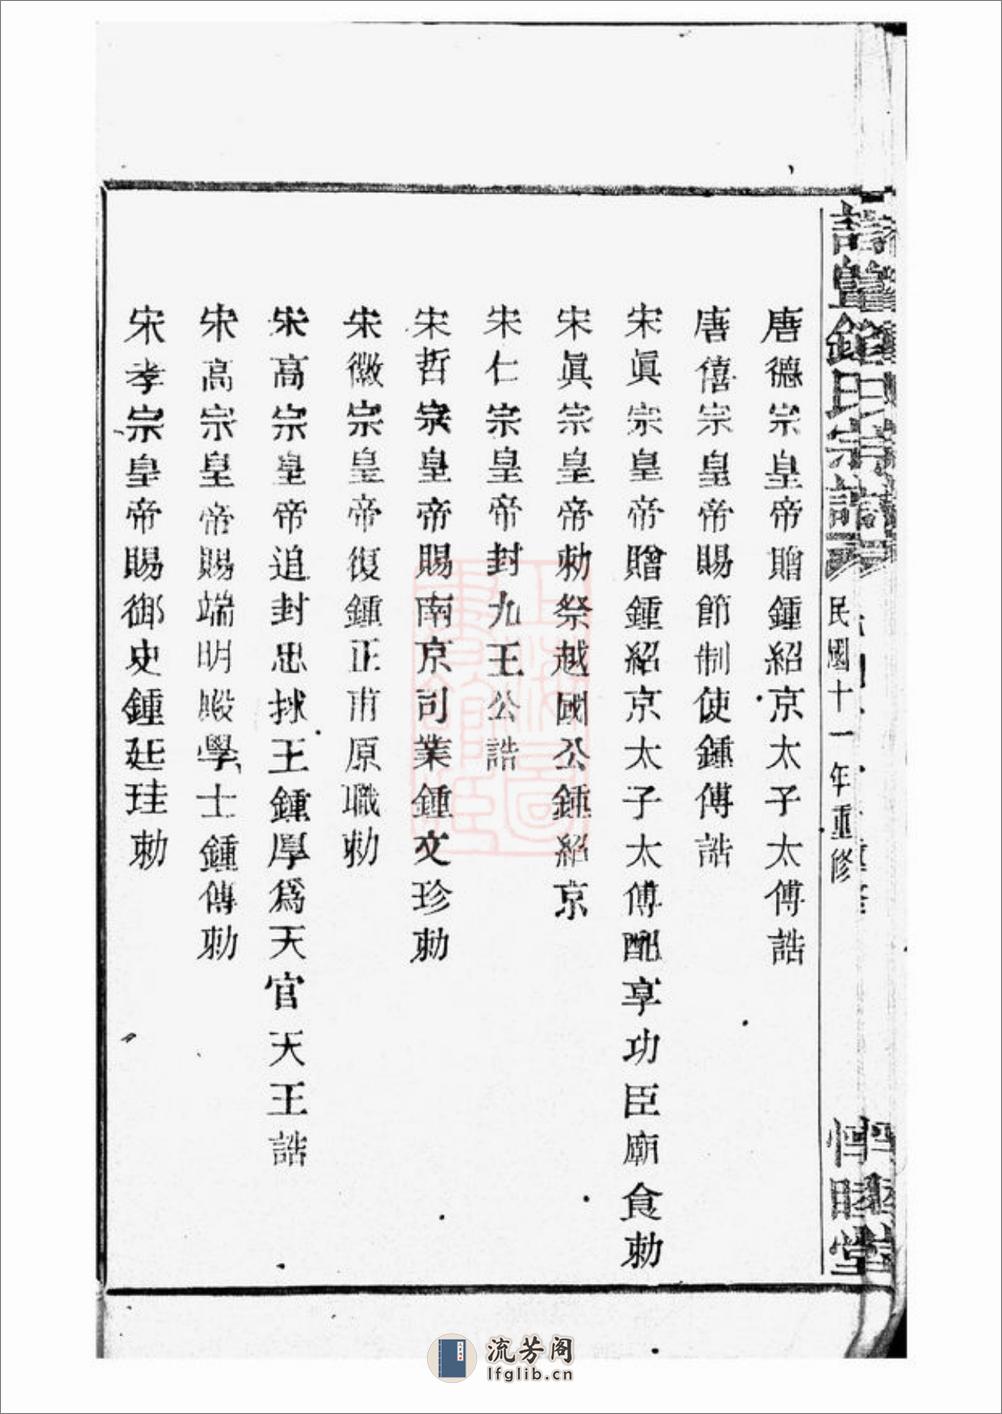 鍾氏宗譜
民國十一年重修
睦堂
唐德宗皇帝贈鍾紹京太子太傅誥
唐僖宗皇帝賜節制使鍾傅誥
宋眞宗皇帝贈鍾紹京太子太傅配享功臣廟食勅
宋眞宗皇帝勅祭越國公鍾紹京
宋仁宗皇帝封九王公誥
宋哲宗皇帝賜南京司業鍾文珍勅
宋徽宗皇帝復鍾正甫原職勅
宋高宗皇帝追封忠捄王鍾厚爲天官天王誥
宋高宗皇帝賜端明殿學士鍾傳勅
宋孝宗皇帝賜御史鍾廷珪勅
流芳阁
lfglib.cn